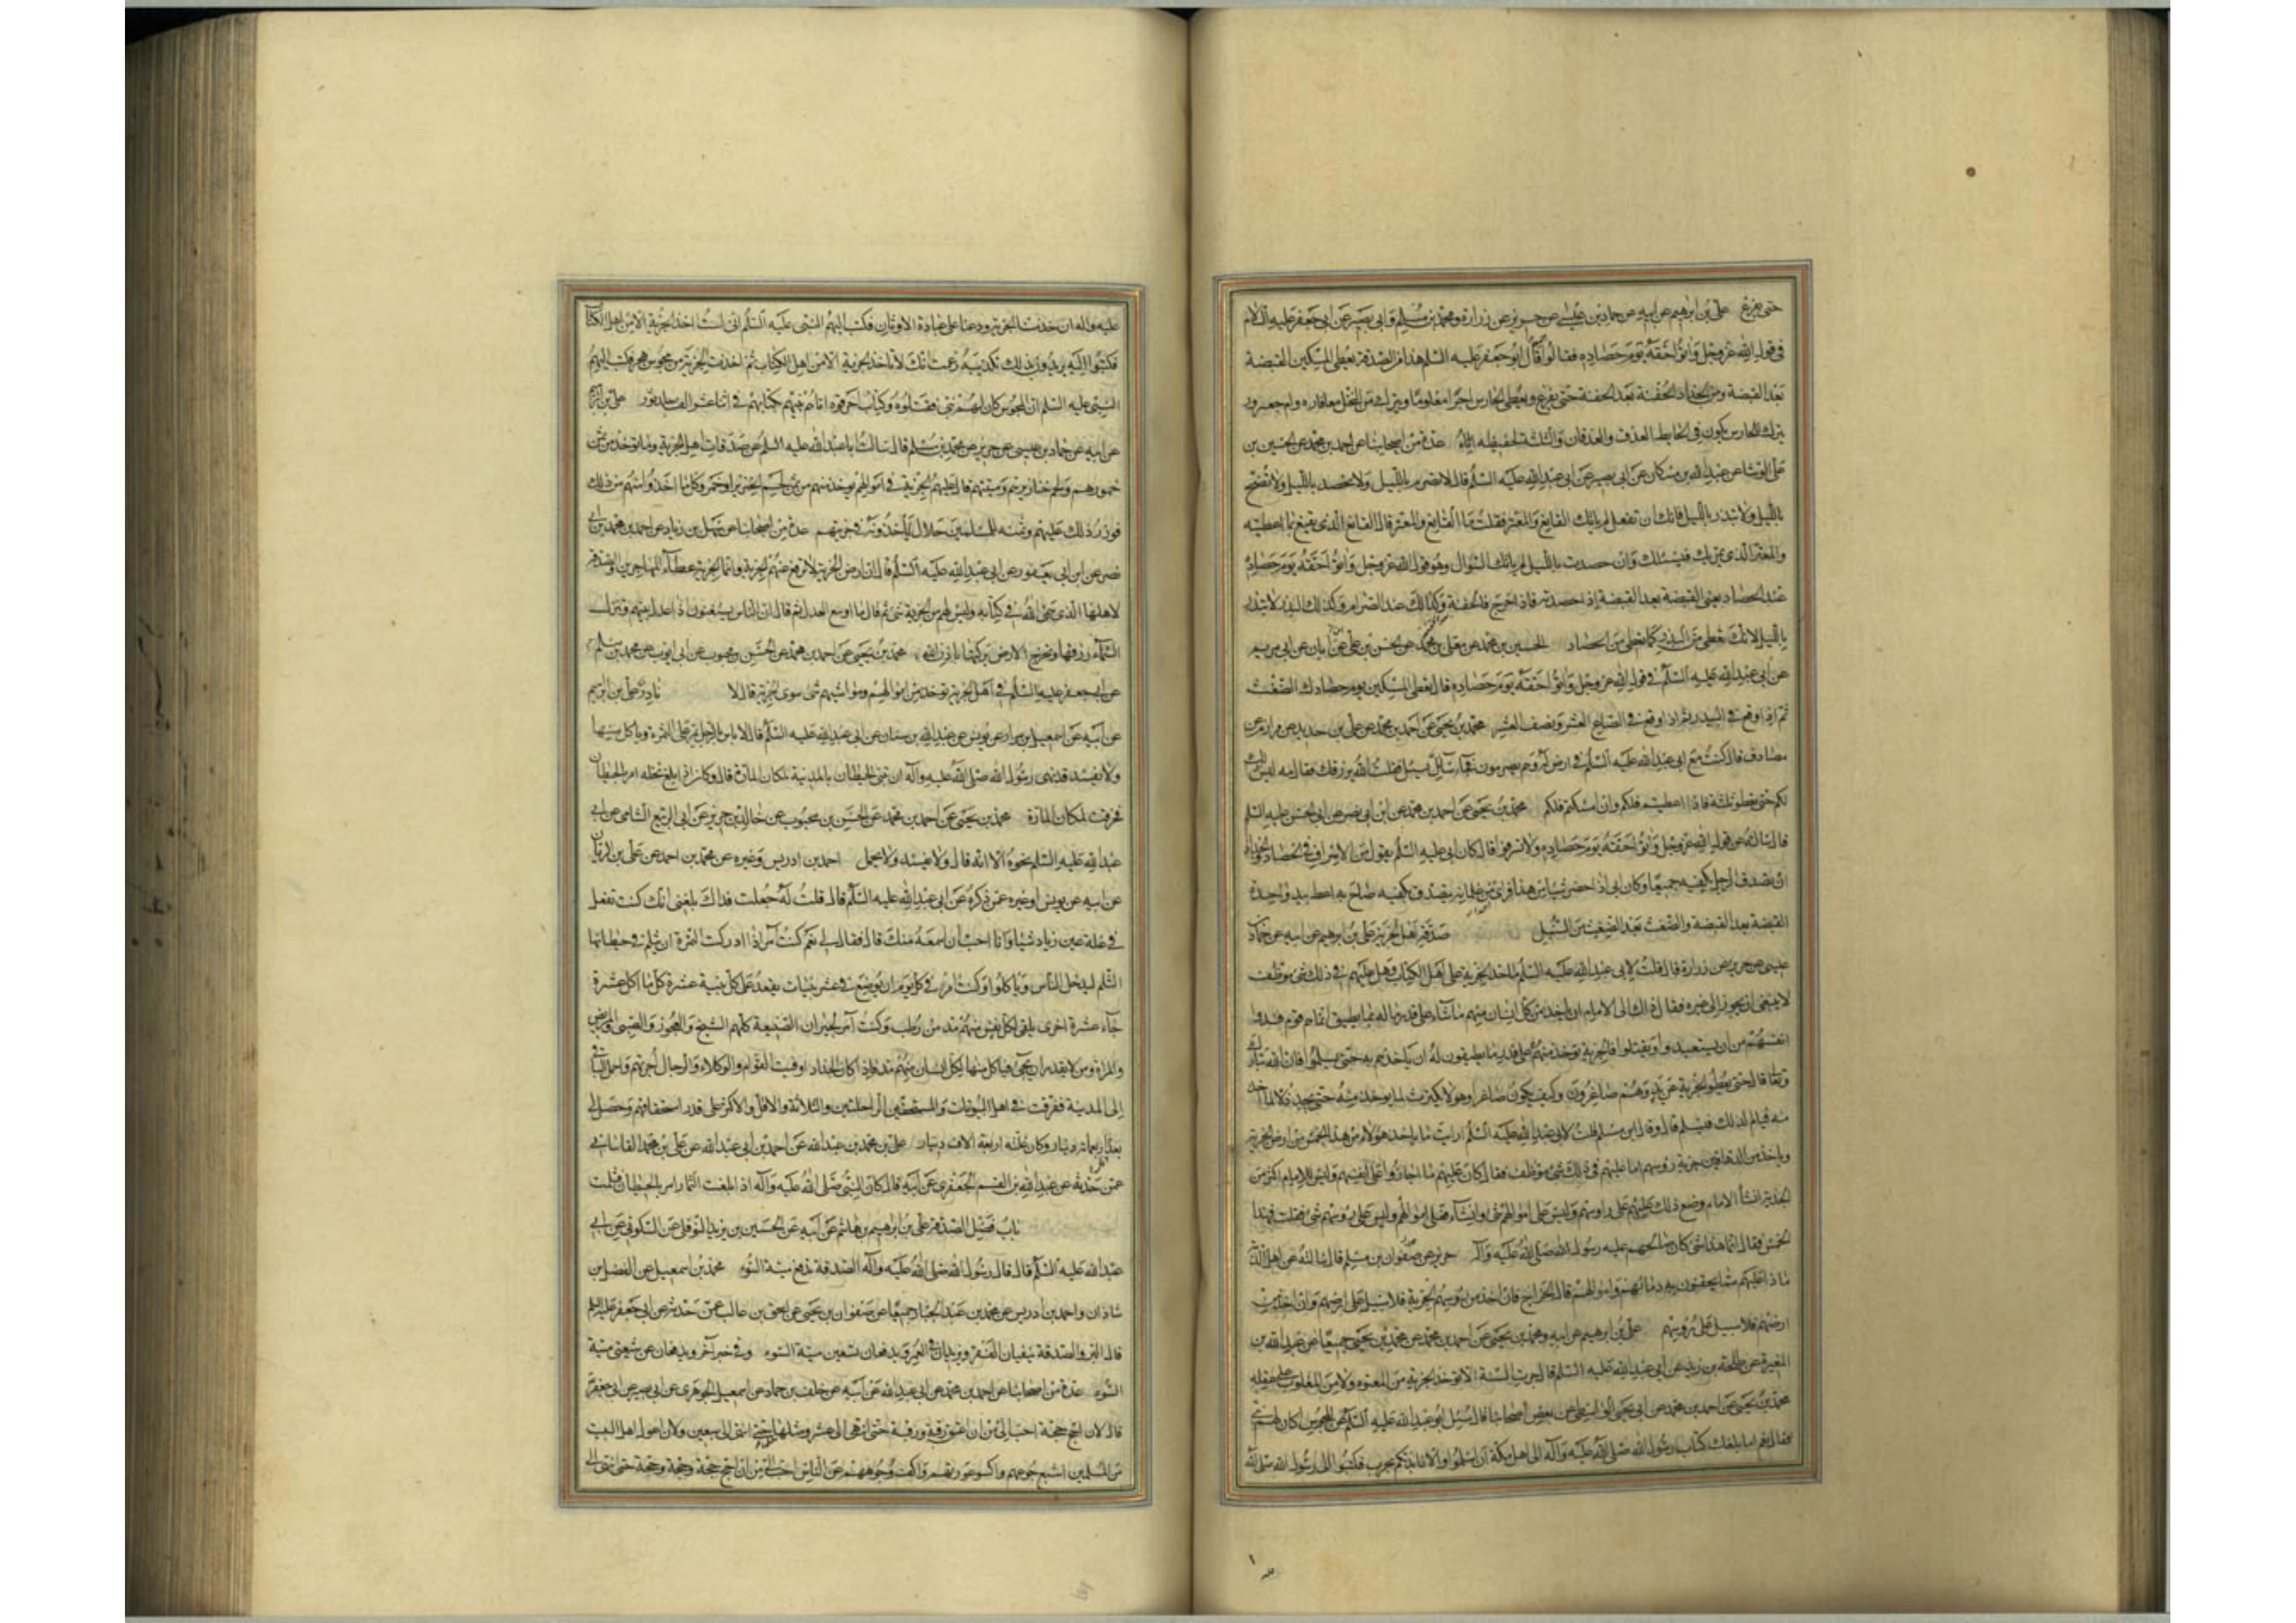 حتى يفرغ علي بن ابرهيم عن ابيه عن حماد بن عيسى عن حريز عن زرارة ومحمد بن مسلم وابي بصير عن ابي جعفر عليه السلام
في قول الله عز وجل واتوا حقه يوم حصاده فقالوا قال ابو جعفر عليه السلم هذا من الصدقة يعطي المسكين القبضة
بعد القبضة ومن الجداد الحفنة بعد الحفنة حتى يفرغ ويعطى الحارس اجرا معلوما ويترك من النخل معافاره وام جعرور
يترك للحارس يكون في الحايط العذق والعذقان والثلثة لحفظه اياه عدة من اصحابنا عن احمد بن محمد عن الحسين بن
علي الوشا عن عبد الله بن مسكان عن ابي بصير عن ابي عبد الله عليه السلم قال لا تصرم بالليل ولا تحصد بالليل ولا تضح
بالليل ولا تبذر بالليل فانك ان تفعل لم ياتك القانع والمعتر فقلت ما القانع والمعتر قال القانع الذي يقنع بما اعطيته
والمعتر الذي يمر بك فيسئلك وان حصدت بالليل لم ياتك السؤال وهو قول الله عز وجل واتوا حقه يوم حصاده
عند الحصاد يعني القبضة بعد القبضة اذا حصدته فاذا خرج فالحفنة وكذلك عند الصرام وكذلك البذر لا تبذر
بالليل لانك تعطي من البذر كما تعطي من الحصاد الحسين بن محمد عن معلى بن محمد عن الحسن بن علي عن ابان عن ابي مريم
عن ابي عبد الله عليه السلم في قول الله عز وجل واتوا حقه يوم حصاده قال تعطي المسكين يوم حصادك الضغث
ثم اذا وقع في البيدر ثم اذا وقع في الصاع العشر ونصف العشر محمد بن يحيى عن احمد بن محمد عن علي بن حديد عن مرازم عن
مصادف قال كنت مع ابي عبد الله عليه السلم في ارض له وهم يصرمون فجاء سائل يسئل فقلت الله يرزقك فقال مه ليس ذلك
لكم حتى تعطوا ثلثة فاذا اعطيتم فلكم وان امسكتم فلكم محمد بن يحيى عن احمد بن محمد عن ابن ابي نصر عن ابي الحسن عليه السلم
قال سالته عن قول الله عز وجل واتوا حقه يوم حصاده ولا تسرفوا قال كان ابي عليه السلم يقول من الاسراف في الحصاد والجداد
ان يصدق الرجل بكفيه جميعا وكان ابي اذا حضر شيئا من هذا فراى من غلمانه يصدق بكفيه صاح به اعط بيد واحدة
القبضة بعد القبضة والضغث بعد الضغث من السنبل صدقة اهل الجزية علي بن ابرهيم عن ابيه عن حماد بن
عيسى عن حريز عن زرارة قال قلت لابي عبد الله عليه السلم ما حد الجزية على اهل الكتاب وهل عليهم في ذلك شي موظف
لا ينبغي ان يجوز الى غيره فقال ذاك الى الامام ان ياخذ من كل انسان منهم ما شاء على قدر ماله بما يطيق انما هم قوم فدوا
انفسهم من ان يستعبدوا او يقتلوا فالجزية توخذ منهم على قدر ما يطيقون له ان ياخذهم به حتى يسلموا فان الله تبارك
وتعالى قال حتى يعطوا الجزية عن يد وهم صاغرون وكيف يكون صاغرا وهو لا يكترث لما يوخذ منه حتى يجد ذلا لما اخذ
منه فيالم لذلك فيسلم قال وقال ابن مسلم قلت لابي عبد الله عليه السلم ارايت ما ياخذ هؤلاء من هذا الخمس من ارض الجزية
وياخذ من الدهاقين جزية رؤسهم اما عليهم في ذلك شي موظف فقال كان عليهم ما اجازوا على انفسهم وليس للامام اكثر من
الجزية ان شاء الامام وضع ذلك عليهم على رؤسهم وليس على اموالهم شي وان شاء فعلى اموالهم وليس على رؤسهم شي فقلت فهذا
الخمس فقال انما هذا شي كان صالحهم عليه رسول الله صلى الله عليه واله حريز عن محمد بن مسلم قال سالته عن اهل الذمة
ماذا عليهم مما يحقنون به دمائهم واموالهم قال الخراج فان اخذ من رؤسهم الجزية فلا سبيل على ارضهم وان اخذ من
ارضهم فلا سبيل على رؤسهم علي بن ابرهيم عن ابيه ومحمد بن يحيى عن احمد بن محمد عن محمد بن يحيى جميعا عن عبد الله بن
المغيرة عن طلحة بن زيد عن ابي عبد الله عليه السلم قال جرت السنة الا توخذ الجزية من المعتوه ولا من المغلوب على عقله
محمد بن يحيى عن احمد بن محمد عن ابي يحيى الواسطي عن بعض اصحابنا قال سئل ابو عبد الله عليه السلم عن المجوس اكان لهم نبي
فقال نعم اما بلغك كتاب رسول الله صلى الله عليه واله الى اهل مكة ان اسلموا والا نابذتكم بحرب فكتبوا الى رسول الله صلى الله
عليه واله ان خذ منا الجزية ودعنا على عبادة الاوثان فكتب اليهم النبي عليه السلم اني لست اخذ الجزية الا من اهل الكتاب
فكتبوا اليه يريدون بذلك تكذيبه زعمت انك لا تاخذ الجزية الا من اهل الكتاب ثم اخذت الجزية من مجوس هجر فكتب اليهم
النبي عليه السلم ان المجوس كان لهم نبي فقتلوه وكتاب احرقوه اتاهم نبيهم بكتابهم في اثنا عشر الف جلد ثور علي بن ابرهيم
عن ابيه عن حماد بن عيسى عن حريز عن محمد بن مسلم قال سالت ابا عبد الله عليه السلم عن صدقات اهل الجزية وما يوخذ من ثمن
خمورهم ولحم خنازيرهم وميتتهم قال عليهم الجزية في اموالهم يوخذ منهم من ثمن لحم الخنزير او خمر وكل ما اخذوا منهم من ذلك
فوزر ذلك عليهم وثمنه للمسلمين حلال ياخذونه في جزيتهم عدة من اصحابنا عن سهل بن زياد عن احمد بن محمد بن ابي
نصر عن ابن ابي يعفور عن ابي عبد الله عليه السلم قال ان ارض الجزية لا ترفع عنهم الجزية وانما الجزية عطاء المهاجرين والصدقة
لاهلها الذي سمى الله في كتابه وليس لهم من الجزية شي ثم قال ما اوسع العدل ثم قال ان الناس يستغنون اذا عدل بينهم وتنزل
السماء رزقها وتخرج الارض بركتها باذن الله محمد بن يحيى عن احمد بن محمد عن الحسن بن محبوب عن ابي ايوب عن محمد بن مسلم
عن ابي جعفر عليه السلم في اهل الجزية توخذ من اموالهم ومواشيهم شي سوى الجزية قال لا نادر علي بن ابرهيم
عن ابيه عن اسمعيل بن مرار عن يونس عن عبد الله بن سنان عن ابي عبد الله عليه السلم قال لا باس بالرجل يمر على الثمرة وياكل منها
ولا يفسد قد نهى رسول الله صلى الله عليه واله ان تبنى الحيطان بالمدينة لمكان المارة قال وكان اذا بلغ نخله امر بالحيطان
فخرقت لمكان المارة محمد بن يحيى عن احمد بن محمد عن الحسن بن محبوب عن خالد بن جرير عن ابي الربيع الشامي عن ابي
عبد الله عليه السلم نحوه الا انه قال ولا يفسد ولا يحمل احمد بن ادريس وغيره عن محمد بن احمد عن علي بن الريان
عن ابيه عن يونس او غيره عمن ذكره عن ابي عبد الله عليه السلم قال قلت له جعلت فداك بلغني انك كنت تفعل
في غلة عين زياد شيئا وانا احب ان اسمعه منك قال فقال لي نعم كنت آمر اذا ادركت الثمرة ان يثلم في حيطانها
الثلم ليدخل الناس وياكلوا وكنت آمر في كل يوم ان يوضع في عشر بنيات يقعد على كل بنية عشرة كل ما اكل عشرة
جاء عشرة اخرى يلقى لكل نفس منهم مد من رطب وكنت آمر لجيران الضيعة كلهم الشيخ والعجوز والصبي والمريض
والمراة ومن لا يقدر ان يجئ فياكل منها لكل انسان منهم مد فاذا كان الجداد اوفيت القوام والوكلاء والرجال اجرتهم واحمل الباقي
الى المدينة ففرقت في اهل البيوتات والمستحقين الراحلتين والثلاثة والاقل والاكثر على قدر استحقاقهم وحصل لي
بعد اربعمائة دينار وكان غلته اربعة الاف دينار علي بن محمد بن عبد الله عن احمد بن ابي عبد الله عن علي بن محمد القاساني
عمن حدثه عن عبد الله بن القسم الجعفري عن ابيه قال كان النبي صلى الله عليه واله اذا بلغت الثمار امر بالحيطان فثلمت
باب فضل الصدقة علي بن ابرهيم بن هاشم عن ابيه عن الحسين بن يزيد النوفلي عن السكوني عن ابي
عبد الله عليه السلم قال قال رسول الله صلى الله عليه واله الصدقة تدفع ميتة السوء محمد بن اسمعيل عن الفضل بن
شاذان واحمد بن ادريس عن محمد بن عبد الجبار جميعا عن صفوان بن يحيى عن اسحق بن غالب عمن حدثه عن ابي جعفر عليه السلم
قال البر والصدقة ينفيان الفقر ويزيدان في العمر ويدفعان تسعين ميتة السوء وفي خبر آخر ويدفعان عن شيعتي ميتة
السوء عدة من اصحابنا عن احمد بن محمد عن ابي عبد الله عن ابيه عن خلف بن حماد عن اسمعيل الجوهري عن ابي بصير عن ابي جعفر
قال لان احج حجة احب الي من ان اعتق رقبة ورقبة حتى انتهى الى عشر ومثلها ومثلها حتى انتهى الى سبعين ولان اعول اهل البيت
من المسلمين اشبع جوعهم واكسو عورتهم واكف وجوههم عن الناس احب الي من ان احج حجة وحجة وحجة حتى انتهى الى